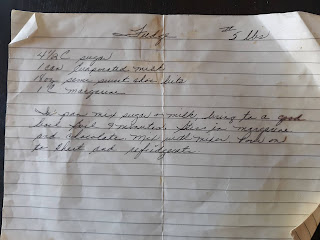 Fudge #5 lbs
4 1/2 C sugar
1 can evaporated milk
18oz semi sweet choc bits
1 C margarine
In pan mix sugar & milk, bring to a good
boil boil 9 minutes. Stir in margarine
and chocolate Mix with mixer. Pour on
to sheet and refridgerate